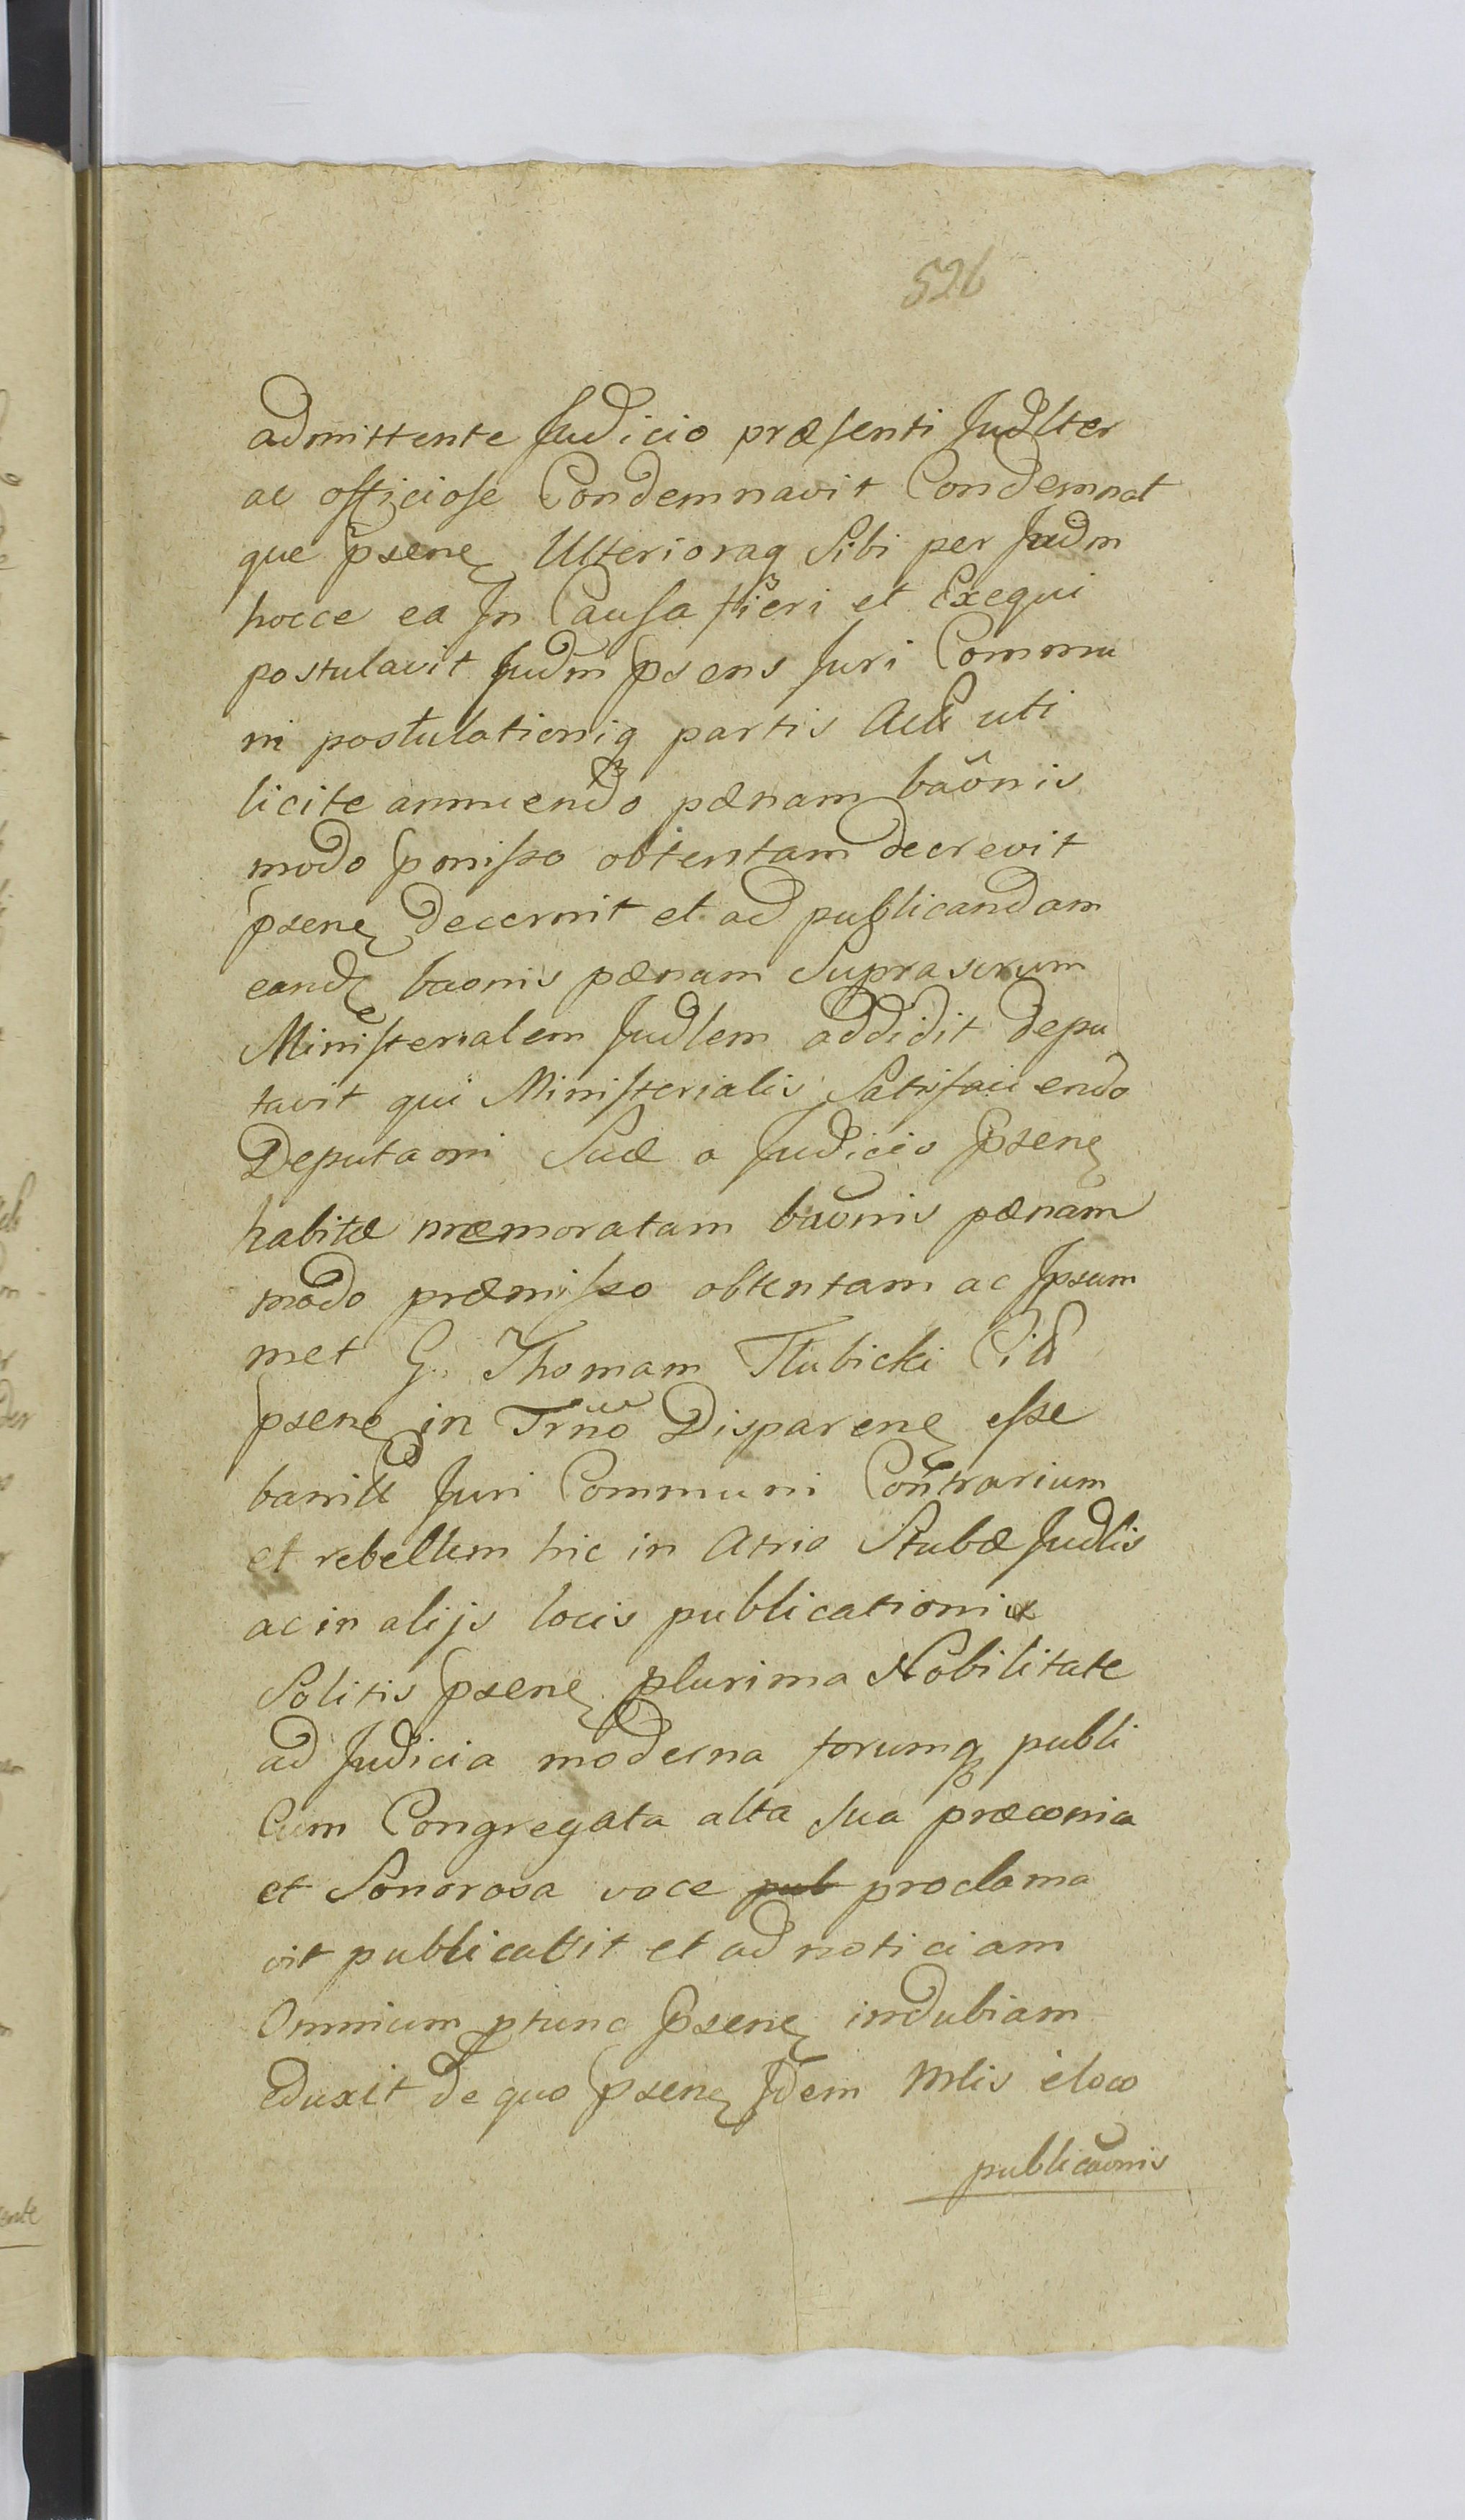 526
admittente Judicio præsenti Judlter
ac officiose Condemnavit Condemnat
que psene Ulterioraq Sibi per Judm
hocce ea In Causa fieri et Exequi
postulavit Judm psens Juri Commu
ni postulationiq partis Act uti
licite annuendo pænam baonis
modo pmisso obtentam decrevit
psene decernit et ad publicandam
eande baonis pænam Suprascrum
Ministerialem Judlem addidit depu
tavit qui Ministerialis Satisfaciendo
Deputaoni Suæ a Judicio psene
habitæ præmoratam baonis pænam
modo præmisso obtentam ac Ipsum
met G. Thomam Tłubicki Cit
psene in Trno Disparene esse
bannit Juri Communi Contrarium
et rebellem hic in Atrio Stubæ Judlis
ac in alijs locis publicationi
Solitis psene plurima Nobilitate
ad Judicia moderna forumq publi
Cum Congregata alta sua præconia
et Sonorosa voce pub proclama
vit publicavit et ad noticiam
Omnium ptunc psene indubiam
eduxit de quo psene Idem Mlis eloco
publicaonis